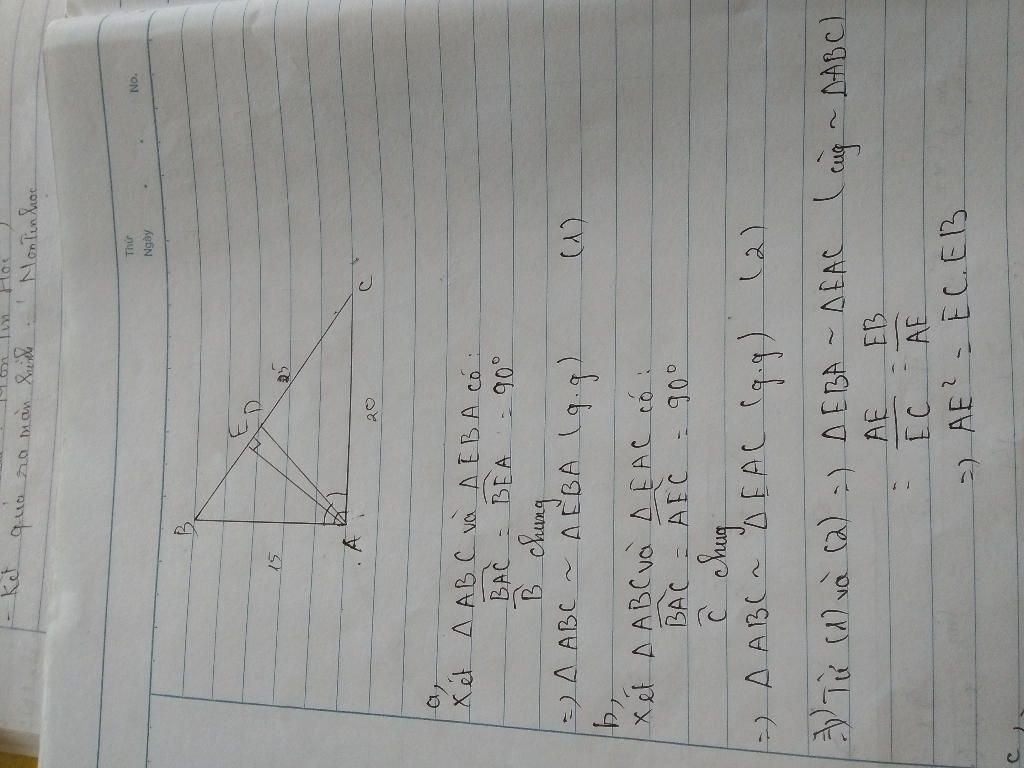 - Kết quả
Môn Tin học
Thứ
Ngày
No.
B
E
D
15
25
A
20
C
a,
Xét ΔABC và ΔEBA có:
BAC = BEA = 90°
B chung
=) ΔABC ~ ΔEBA (g.g) (1)
b,
Xét ΔABC và ΔEAC có:
BAC = AEC = 90°
C chung
=) ΔABC ~ ΔEAC (g.g) (2)
Từ (1) và (2) =) ΔEBA ~ ΔEAC (cùng ~ ΔABC)
= AE/EC = EB/AE
=) AE² = EC.EB
c,